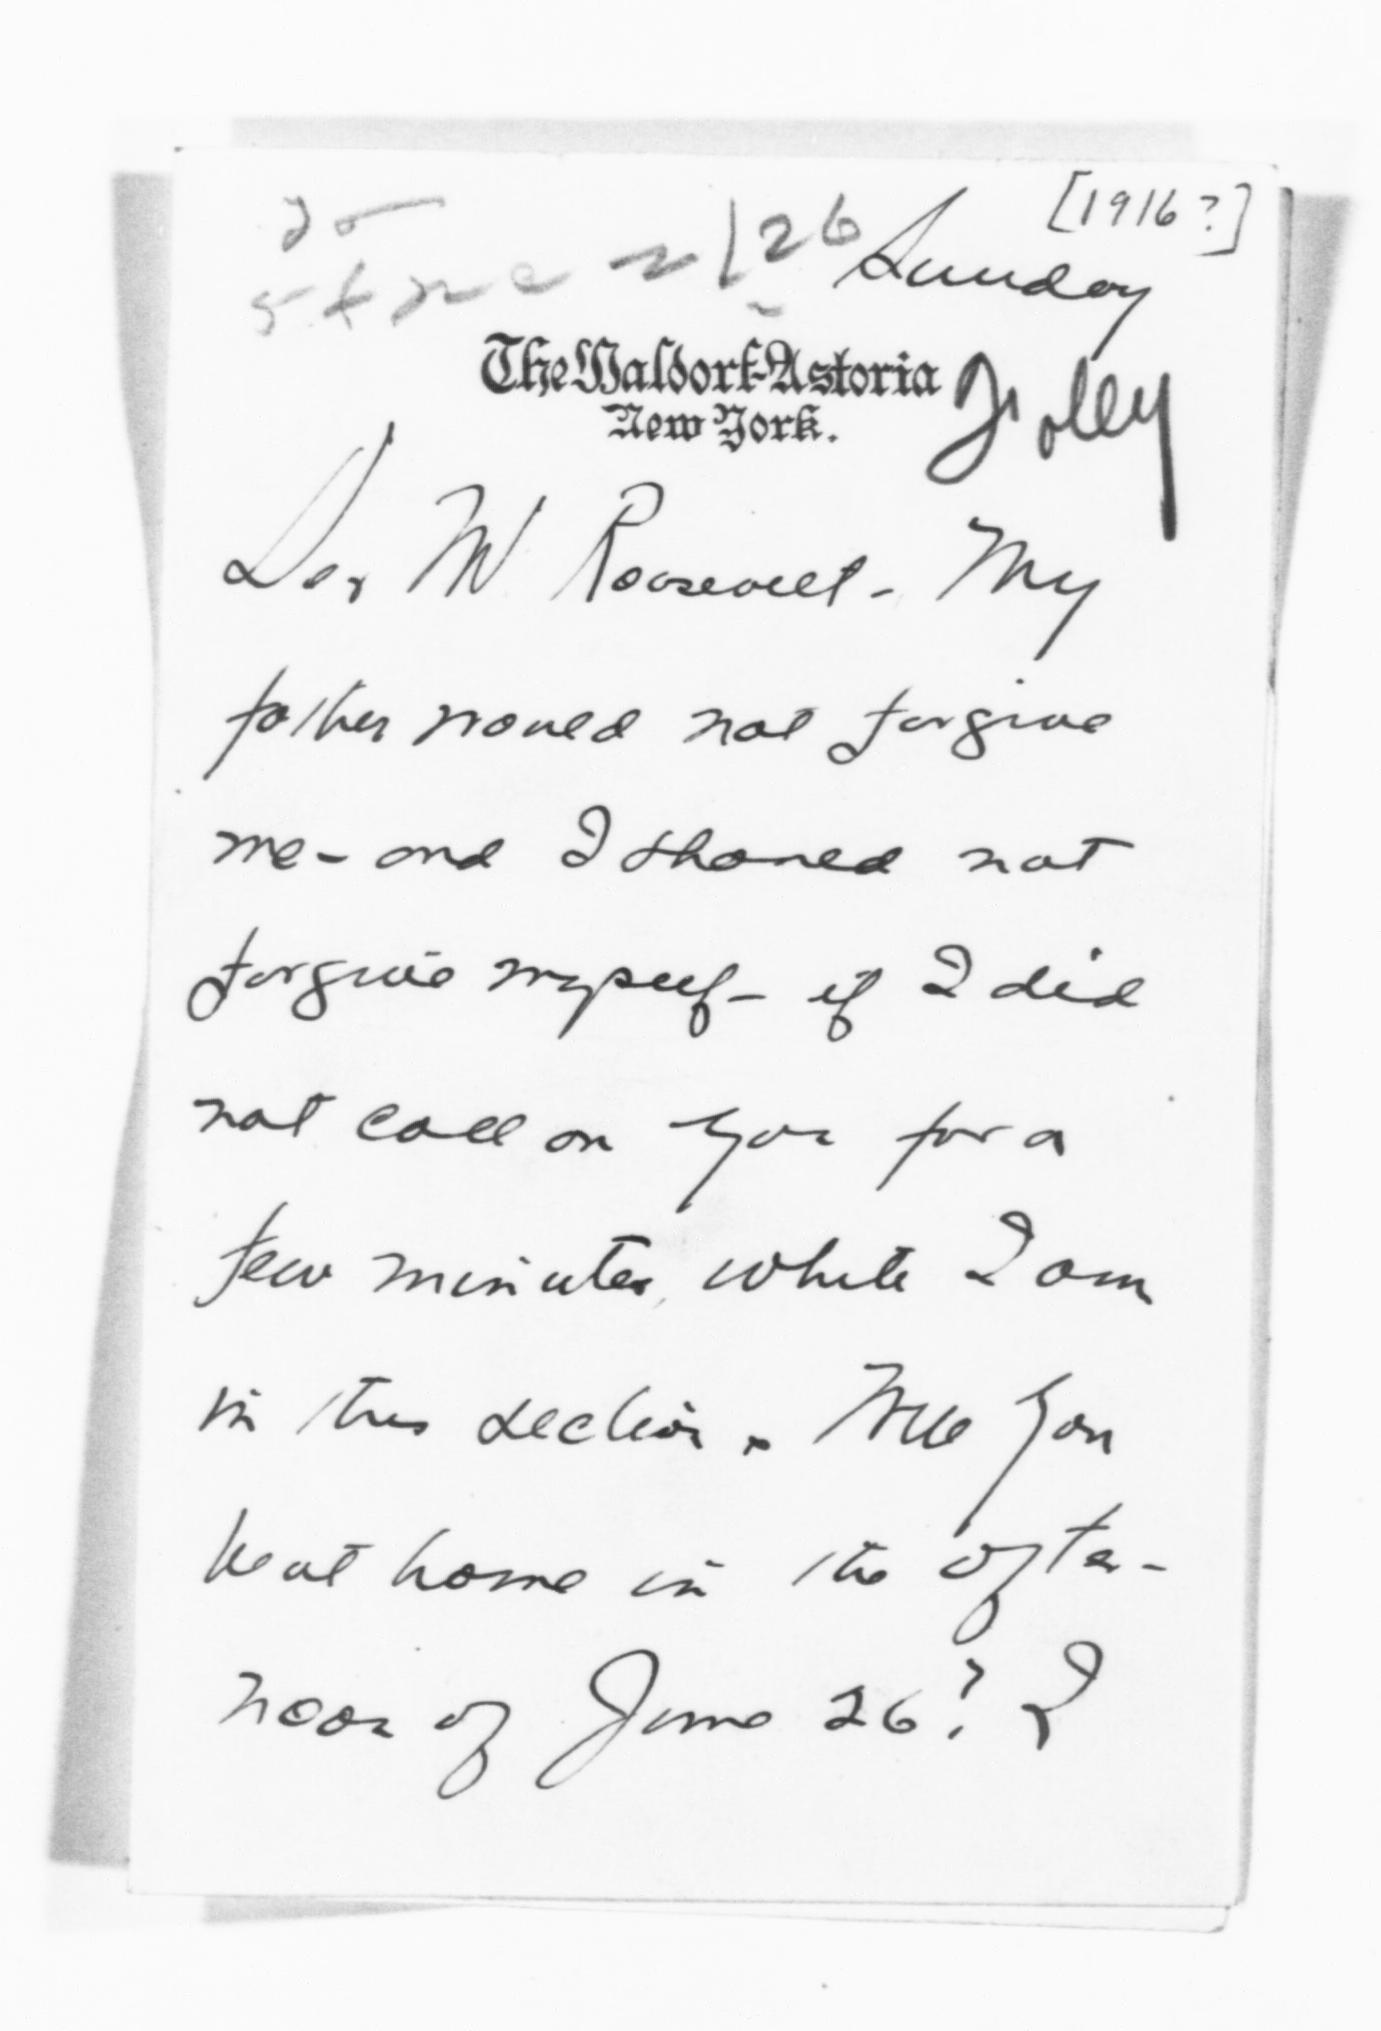 [1916?]
26 Sunday
The Waldorf-Astoria
New York.
Dear Mr Roosevelt - My
father would not forgive
me - and I should not
forgive myself - if I did
not call on you for a
few minutes, while I am
in this section. Will you
be at home in the after-
noon of June 26? I